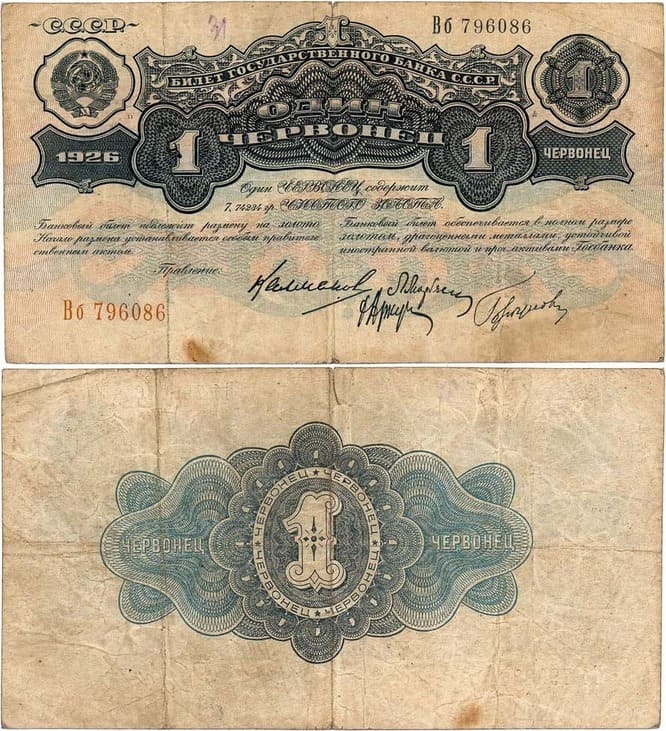 СССР
31
Вб 796086
БИЛЕТ ГОСУДАРСТВЕННОГО БАНКА СССР
1
ОДИН
ЧЕРВОНЕЦ
1
1
1926
ЧЕРВОНЕЦ
Один ЧЕРВОНЕЦ содержит
7,74234 гр. ЧИСТОГО ЗОЛОТА.
Банковый билет подлежит размену на золото
Начало размена устанавливается особым правитель
ственным актом.
Банковый билет обеспечивается в полном размере
золотом, драгоценными металлами, устойчивой
иностранной валютой и проч. активами Госбанка.
Правление:
Вб 796086
ЧЕРВОНЕЦ
ЧЕРВОНЕЦ ★ ЧЕРВОНЕЦ ★ ЧЕРВОНЕЦ ★ ЧЕРВОНЕЦ ★
1
ЧЕРВОНЕЦ